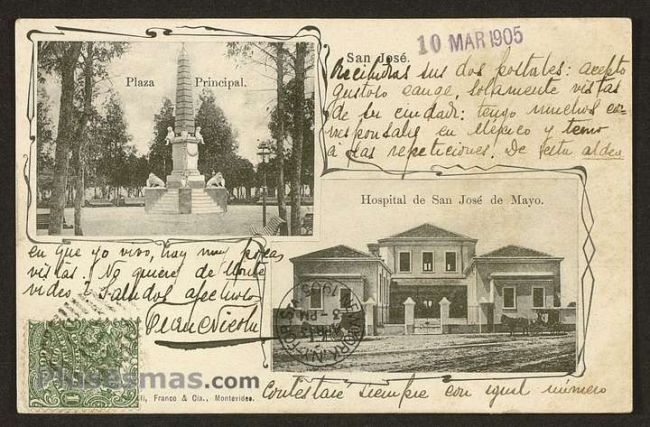 San José.
10 MAR 1905
Plaza Principal.
Recibidas sus dos postales: acepto
gustoso cange, solamente vistas
de su ciudad: tengo muchos co-
rresponsales en Mejico y temo
á las repeticiones. De esta aldea
Hospital de San José de Mayo.
en que yo vivo, hay muy pocas
vistas. ¿No quiere de Monte
video? Saludos afectuosos
1905
3-PM
Contestaré siempre con igual número
Plusesmas.com
Franco & Cia., Montevideo.